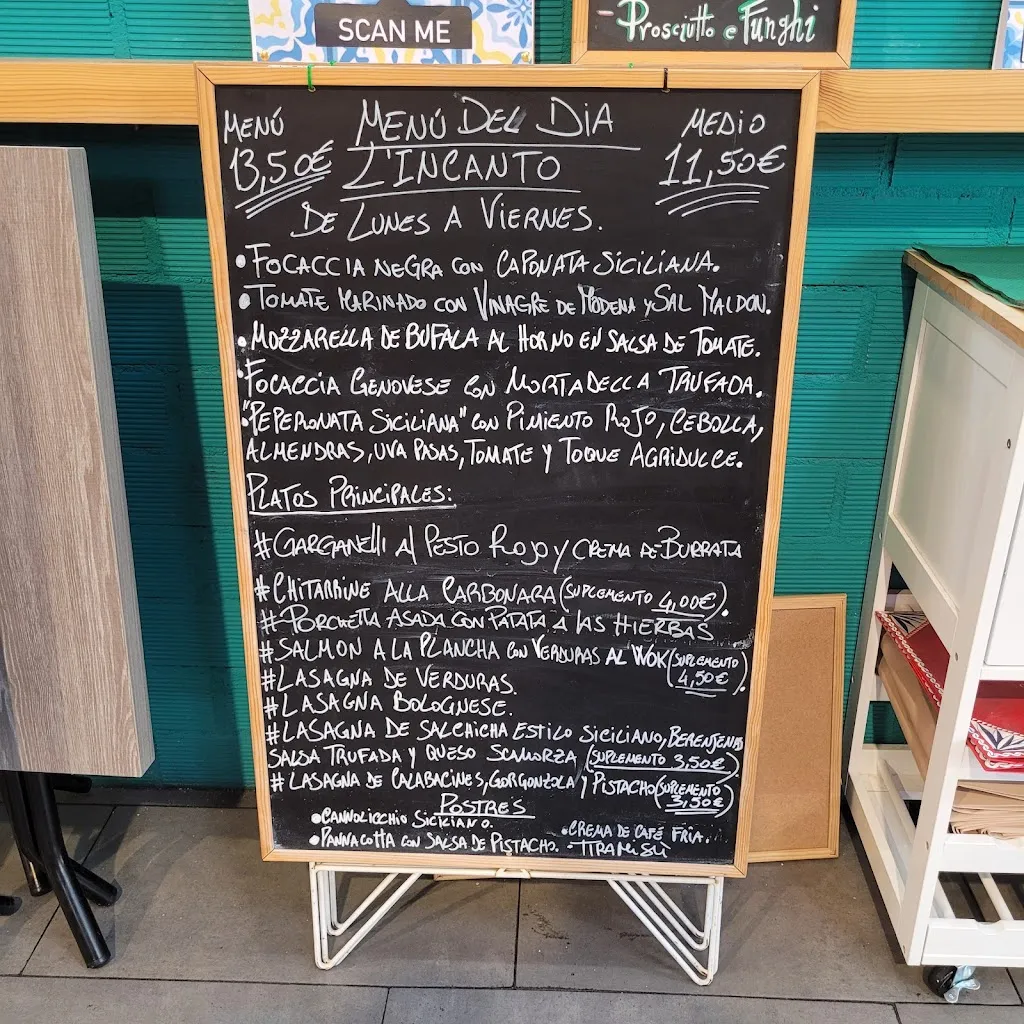 SCAN ME
Prosciutto e Funghi
MENÚ
13,50€
MENÚ DEL DIA
L'INCANTO
MEDIO
11,50€
DE LUNES A VIERNES.
• FOCACCIA NEGRA CON CAPONATA SICILIANA.
• TOMATE MARINADO CON VINAGRE DE MODENA Y SAL MALDON.
• MOZZARELLA DE BUFALA AL HORNO EN SALSA DE TOMATE.
• FOCACCIA GENOVESE CON MORTADELLA TRUFADA.
• "PEPERONATA SICILIANA" CON PIMIENTO ROJO, CEBOLLA,
ALMENDRAS, UVA PASAS, TOMATE Y TOQUE AGRIDULCE.
PLATOS PRINCIPALES:
# GARGANELLI Al PESTO ROJO Y CREMA DE BURRATA
# CHITARRINE ALLA CARBONARA (SUPLEMENTO 4,00€).
# PORCHETTA ASADA CON PATATA A LAS HIERBAS
# SALMON A LA PLANCHA CON VERDURAS AL WOK (SUPLEMENTO 4,50€).
# LASAGNA DE VERDURAS.
# LASAGNA BOLOGNESE.
# LASAGNA DE SALCHICHA ESTILO SICILIANO, BERENJENAS
SALSA TRUFADA Y QUESO SCAMORZA (SUPLEMENTO 3,50€).
# LASAGNA DE CALABACINES, GORGONZOLA Y PISTACHO (SUPLEMENTO 3,50€)
POSTRES
• CANNOLICCHIO SICILIANO.
• CREMA DE CAFÉ FRIA.
• PANNACOTTA CON SALSA DE PISTACHO.
- TIRAMISÙ